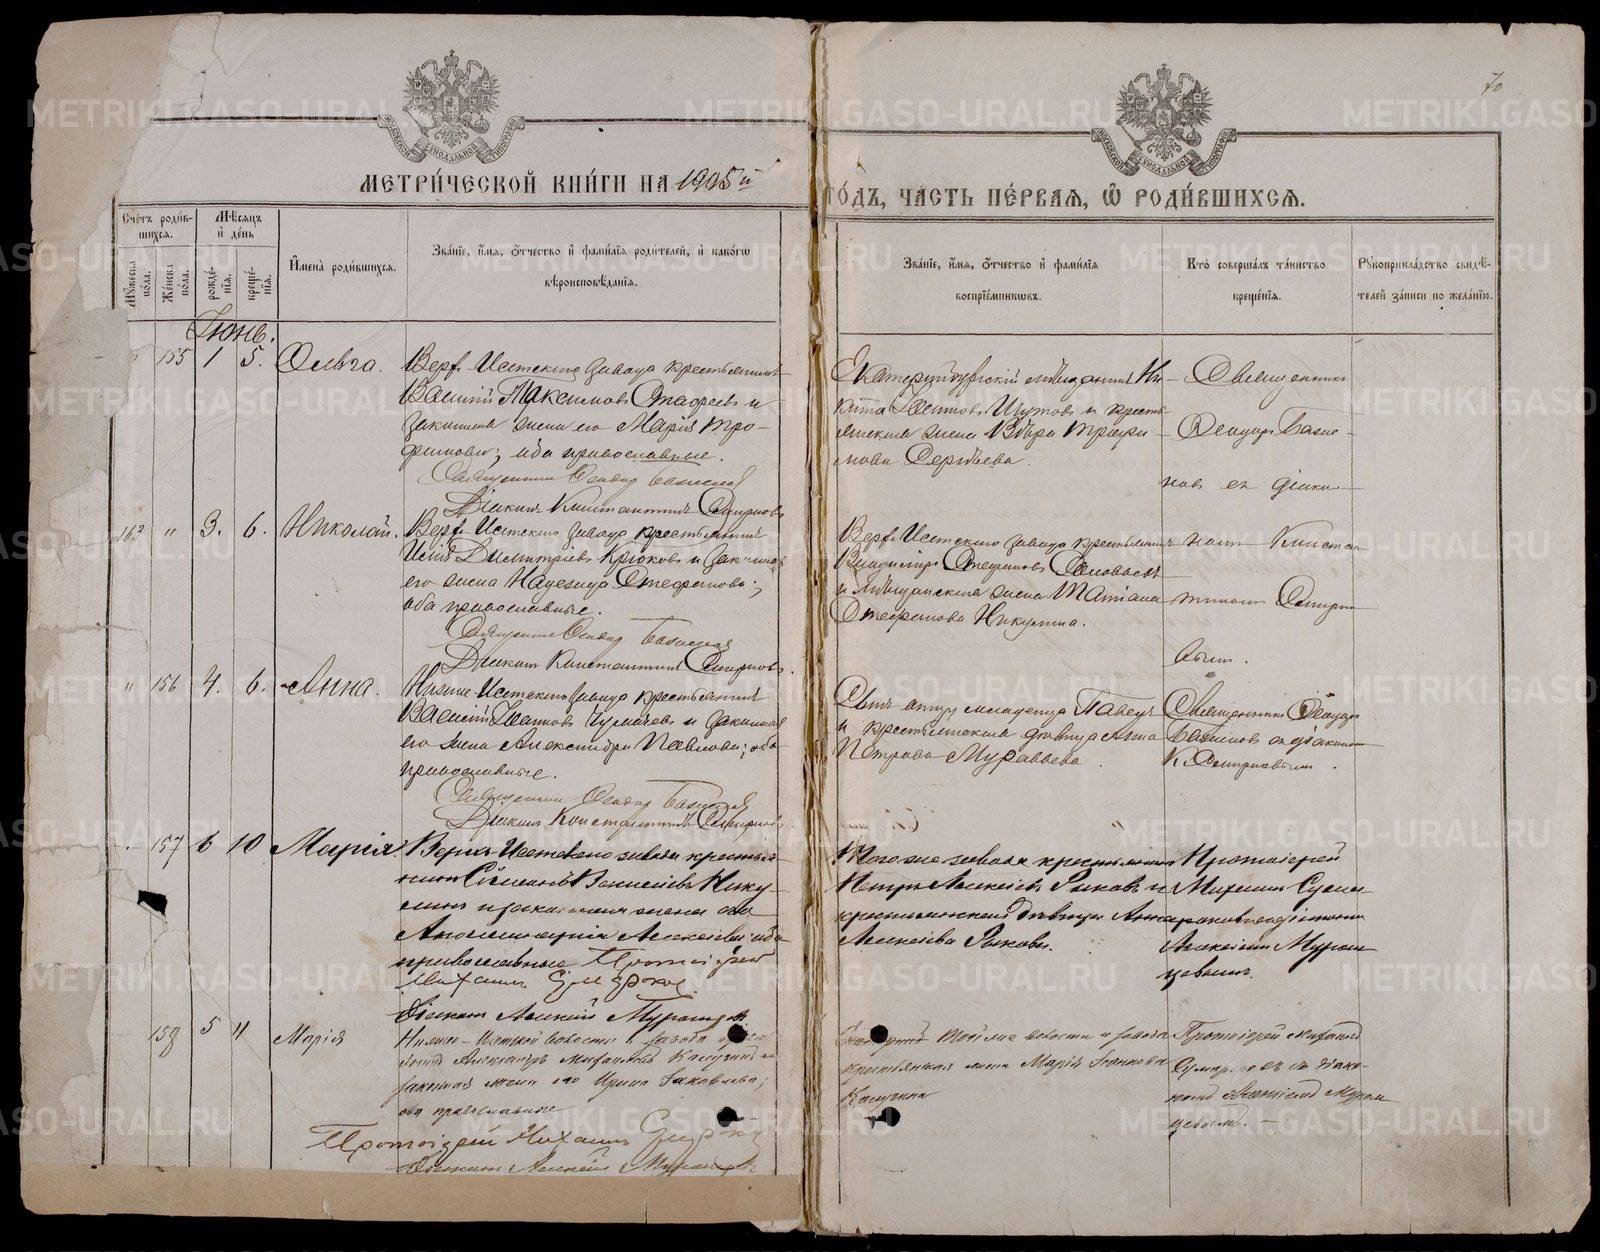 70
МОСКОВСКОЙ СѴНОДАЛЬНОЙ ТИПОГРАФІИ
МОСКОВСКОЙ СѴНОДАЛЬНОЙ ТИПОГРАФІИ
МЕТРИ́ЧЕСКОЙ КНИ́ГИ НА 1905й
ГО́ДЪ, ЧА́СТЬ ПЕ́РВАЯ, Ѽ РОДИ́ВШИХСЯ.
Сче́тъ роди́в-
шихся.
Мꙋ́жеска по́ла.
Же́нска по́ла.
Мѣ́сяцъ
и҆ де́нь
рожде́-
нія.
креще́-
нія.
И҆мена̀ роди́вшихся.
Зва́ніе, и҆́мя, ѻ҆́тчество и҆ фами́лія роди́телей, и҆ како́гѡ
вѣроисповѣ́данія.
Зва́ніе, и҆́мя, ѻ҆́тчество и҆ фами́лія
воспріе́мникѡвъ.
Кто̀ соверша́лъ та́инство
креще́нія.
Рꙋкоприкла́дство свидѣ́-
телей за́писи по жела́нію.
Іюнь.
155 1 5. Ольга.
Верх-Исетскаго завода крестьянинъ
Василій Максимовъ и
законная жена его Марія Тро-
фимова; оба православные.
Священник Феодор
Діаконъ Константинъ Смирновъ
Екатеринбургскій мѣщанинъ Ни-
кита Шутовъ и кресть-
янская жена Вѣра Трофи-
мова Сергѣева.
Священник
Феодор
новъ съ діако-
163 " 3. 6. Николай.
Верх-Исетскаго завода крестьянинъ
Димитріевъ Крюковъ и законная
его жена Надежда Стефанова;
оба православные.
Священник Феодор
Діаконъ Константинъ Смирновъ.
Верх-Исетскаго завода крестьянинъ
Владиміръ Стефановъ Соловьевъ
и мѣщанская жена Татіана
Стефанова Никулина.
номъ Констан
тиномъ Смирно
вымъ.
" 156 4. 6. Анна.
Нижне-Исетскаго завода крестьянинъ
Василій Іоанновъ и законная
его жена Александра Павлова; оба
православные.
Священник Феодор
Діаконъ Константинъ Смирновъ
Сынъ отцу младенца Павелъ
и крестьянская дѣвица Анна
Петрова Муравьева.
Священник Феодор
съ діакономъ
К. Смирновымъ.
157 6 10 Марія.
Верхъ-Исетскаго завода крестья-
нинъ Василіевъ Нику-
линъ и законная жена его
Аполлинарія Алексѣева; оба
православные Протоіерей
Михаилъ
Діаконъ Алексій
Того же завода крестьянинъ
Петръ Алексѣевъ Рыковъ и
крестьянская дѣвица Анна
Алексѣева Рыкова.
Протоіерей
Михаилъ
съ діакономъ
Алексіемъ Муром
цевымъ.
158 5 11 Марія
Нижне-Исетской волости и завода
Александръ Михайловъ Калугинъ и
законная жена его Ирина Іаковлева;
оба православные
Протоіерей Михаилъ
Діаконъ Алексій
Той же волости и завода
крестьянская жена Марія Іоаннова
Калугина
Протоіерей Михаилъ
съ діако-
номъ Алексіемъ Муром
цевымъ.
METRIKI.GASO-URAL.RU